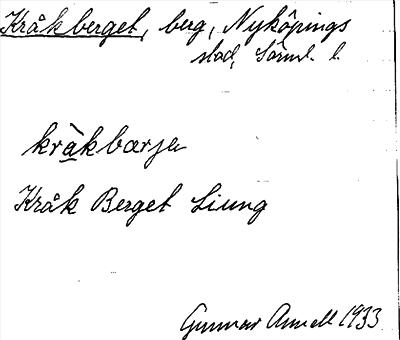 Kråkberget, berg, Nyköpings
stad, Sörml. l.
kràkbærja
Kråk Berget Liung
Gunnar Annell 1933